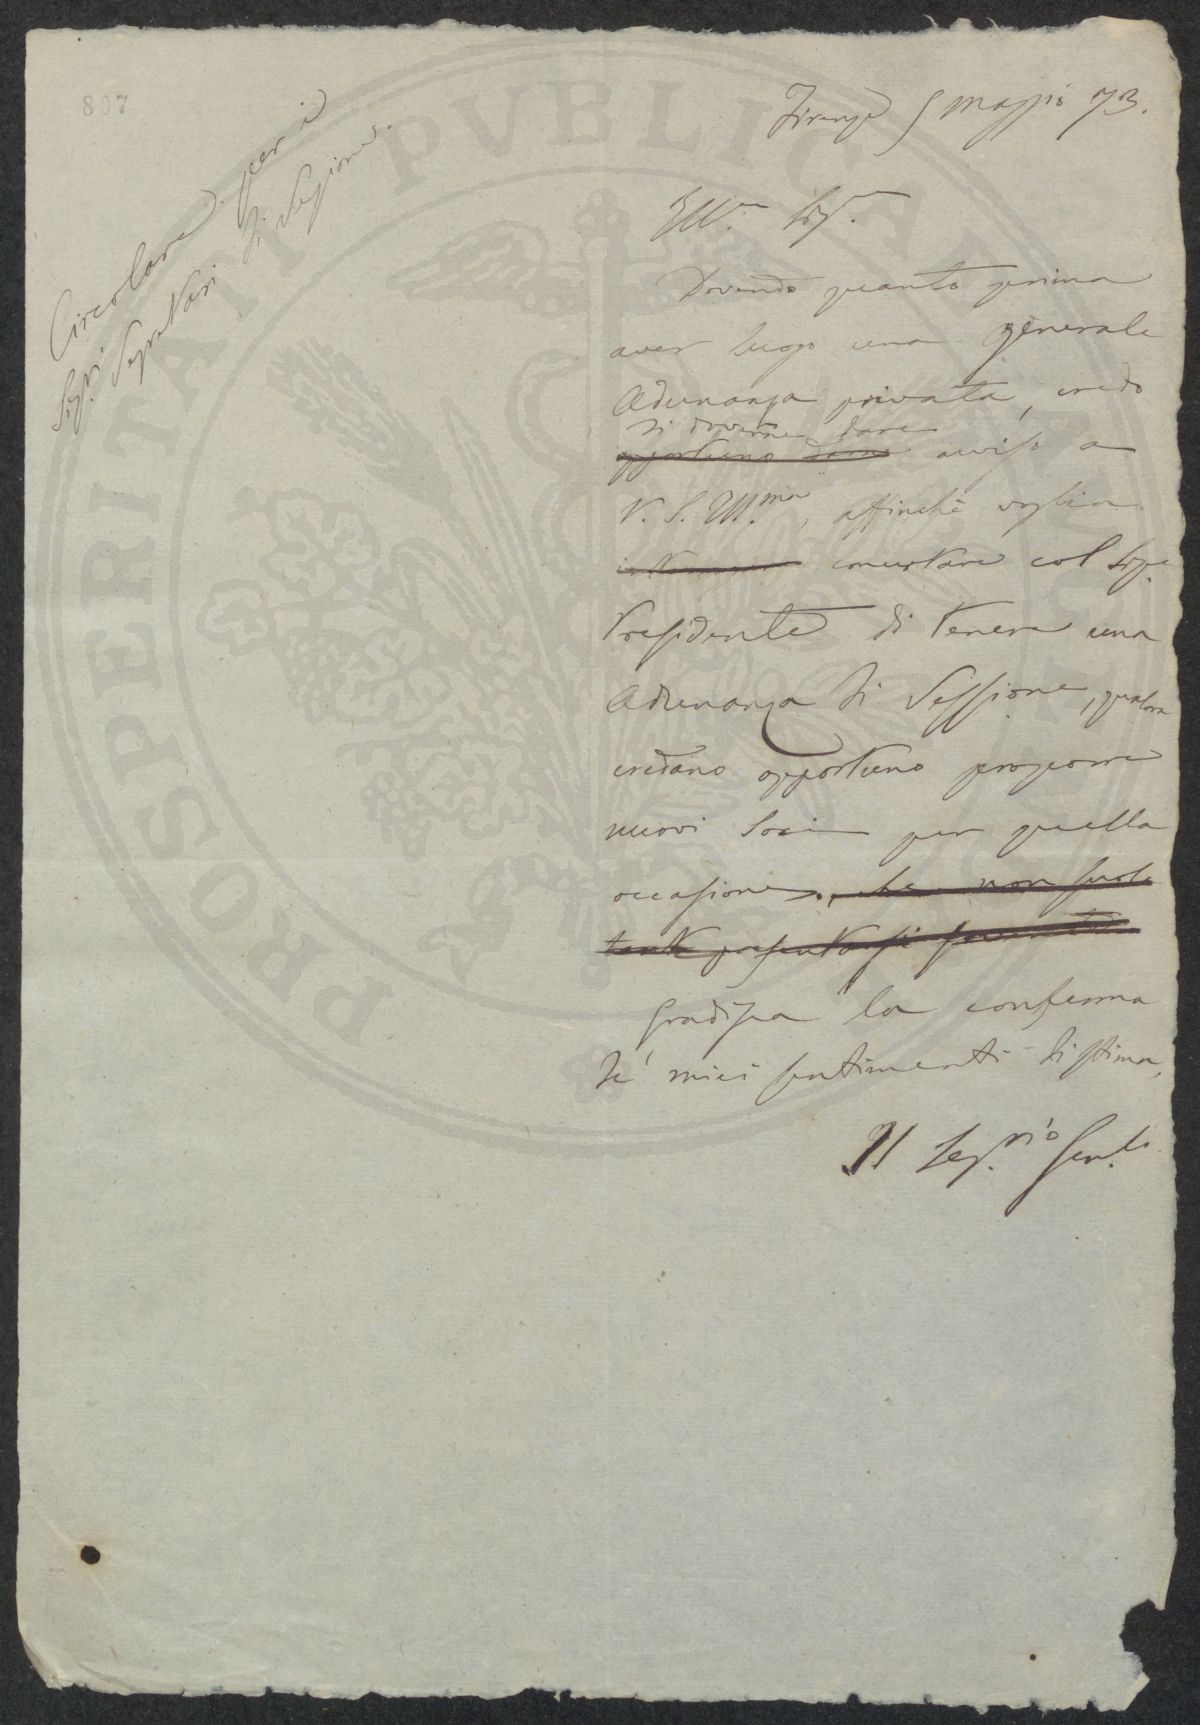 807
Circolare per i
Sigri Segretari di Sezione.
Firenze 5 Maggio 73.
Illmo Sigre
Dovendo quanto prima
aver luogo una generale
Adunanza privata, credo
di doverne dare
opportuno darne avviso a
V. S. Illma, affinchè voglia
concertare col Sigr
Presidente di tenere una
Adunanza di Sessione, qualora
credano opportuno proporre
nuovi Soci per quella
occasione, che non suole
presentarsi
Gradisca la conferma
de' miei sentimenti di stima.
Il Segrio
PROSPERITATI PVBLICAE